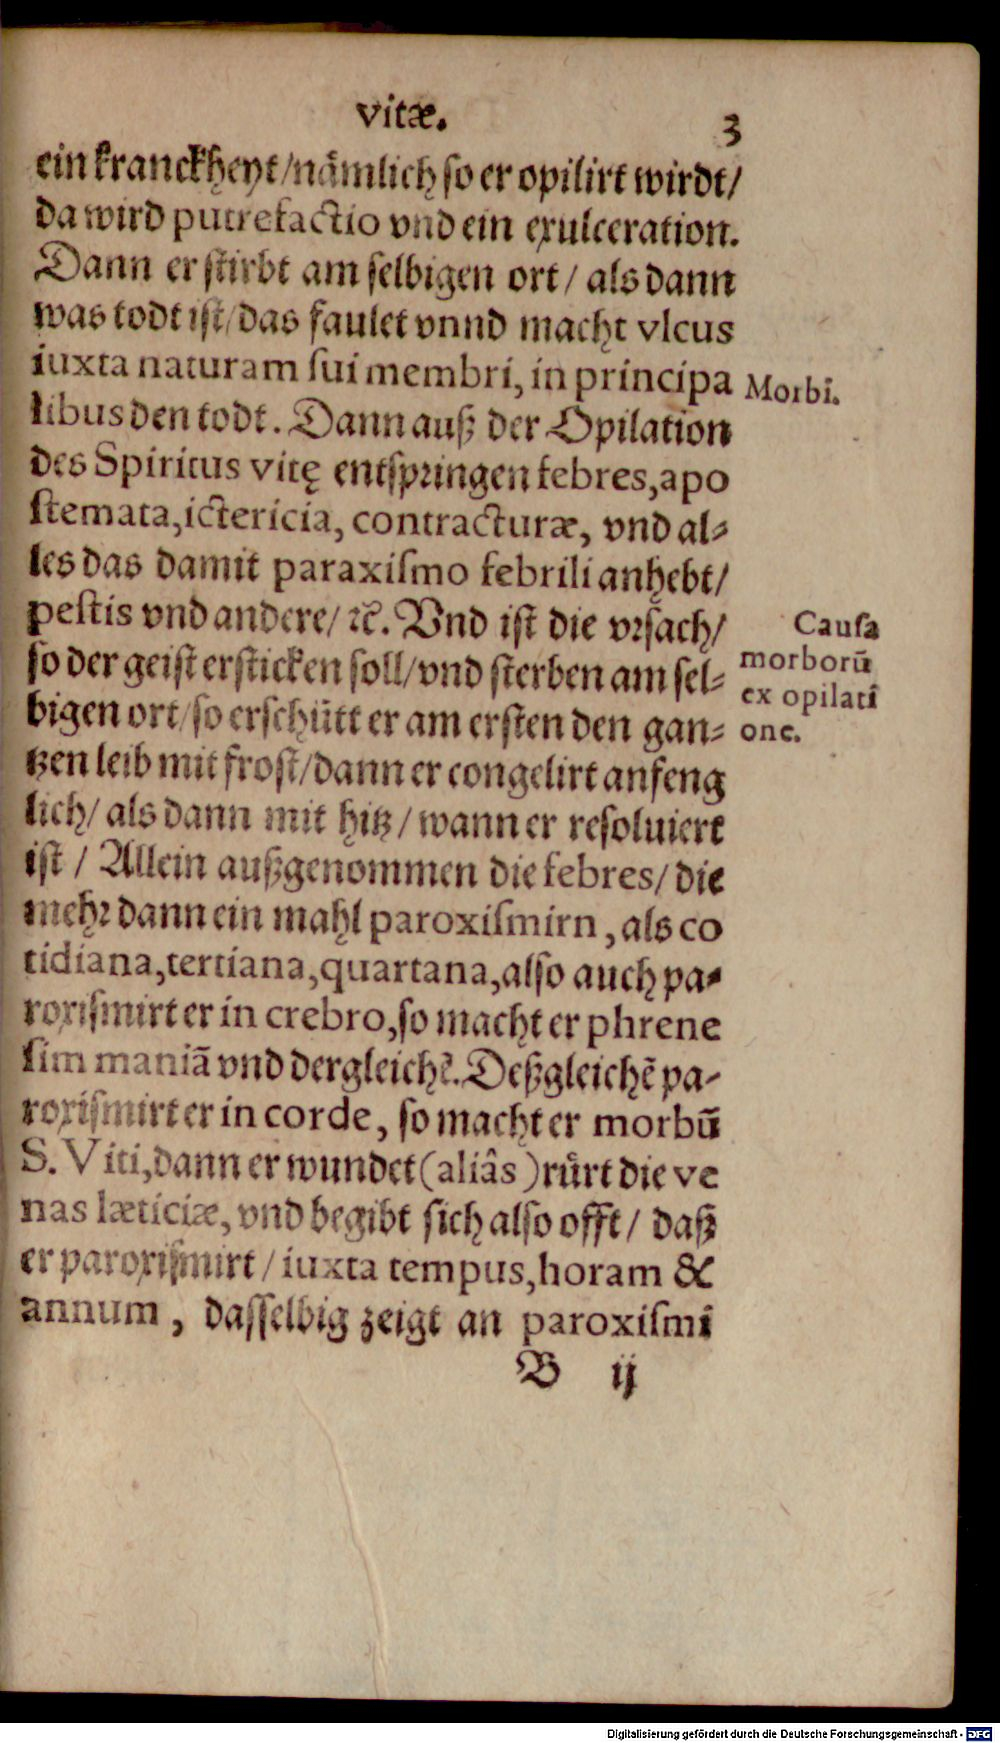 vitæ.
3
ein kranckheyt/nämlich so er opilirt wirdt/
da wird putrefactio vnd ein exulceration.
Dann er stirbt am selbigen ort/ als dann
was todt ist/das faulet vnnd macht vlcus
iuxta naturam sui membri, in principa
libus den todt. Dann auß der Opilation
des Spiritus vitę entspringen febres, apo
stemata, ictericia, contracturæ, vnd al⸗
les das damit paraxiſmo febrili anhebt/
pestis vnd andere/ ꝛc. Vnd ist die vrsach/
so der geist ersticken soll/vnd sterben am sel⸗
bigen ort/so erschütt er am ersten den gan⸗
tzen leib mit frost/dann er congelirt anfeng
lich/ als dann mit hitz/ wann er resoluiert
ist / Allein außgenommen die febres/ die
mehr dann ein mahl paroxiſmirn, als co
tidiana, tertiana, quartana, also auch pa⸗
roxismirt er in crebro, so macht er phrene
sim maniā vnd dergleichē. Deßgleichē pa⸗
roxismirt er in corde, so macht er morbū
S. Viti, dann er wundet (aliâs) rürt die ve
nas læticiæ, vnd begibt sich also offt/ daß
er paroxismirt/ iuxta tempus, horam &
annum, dasselbig zeigt an paroxiſmi
B ij
Morbi.
Causa
morborū
ex opilati
one.
Digitalisierung gefördert durch die Deutsche Forschungsgemeinschaft - DFG